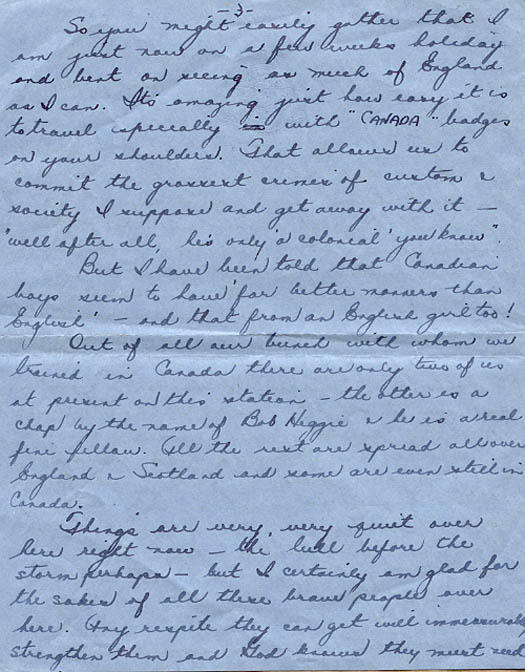 -3-
So you might easily gather that I
am just now on a few weeks holiday
and bent on seeing as much of England
as I can. It's amazing just how easy it is
to travel especially in with "CANADA" badges
on your shoulders. That allows us to
commit the grossest crimes of custom &
society I suppose and get away with it —
"well after all, he's only a colonial 'you know".
But I have been told that Canadian
boys seem to have 'far better manners than
English' — and that from an English girl too!
Out of all our bunch with whom we
trained in Canada there are only two of us
at present on this station — the other is a
chap by the name of Bob Heggie & he is a real
fine fellow. All the rest are spread all over
England & Scotland and some are even still in
Canada.
Things are very, very quiet over
here right now — the lull before the
storm perhaps — but I certainly am glad for
the sakes of all these brave people over
here. Any respite they can get will immeasurably
strengthen them and God knows they must need